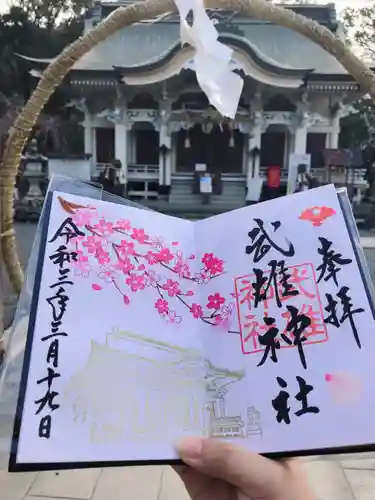 奉拝
武雄神社
武雄神社
令和三年三月十九日